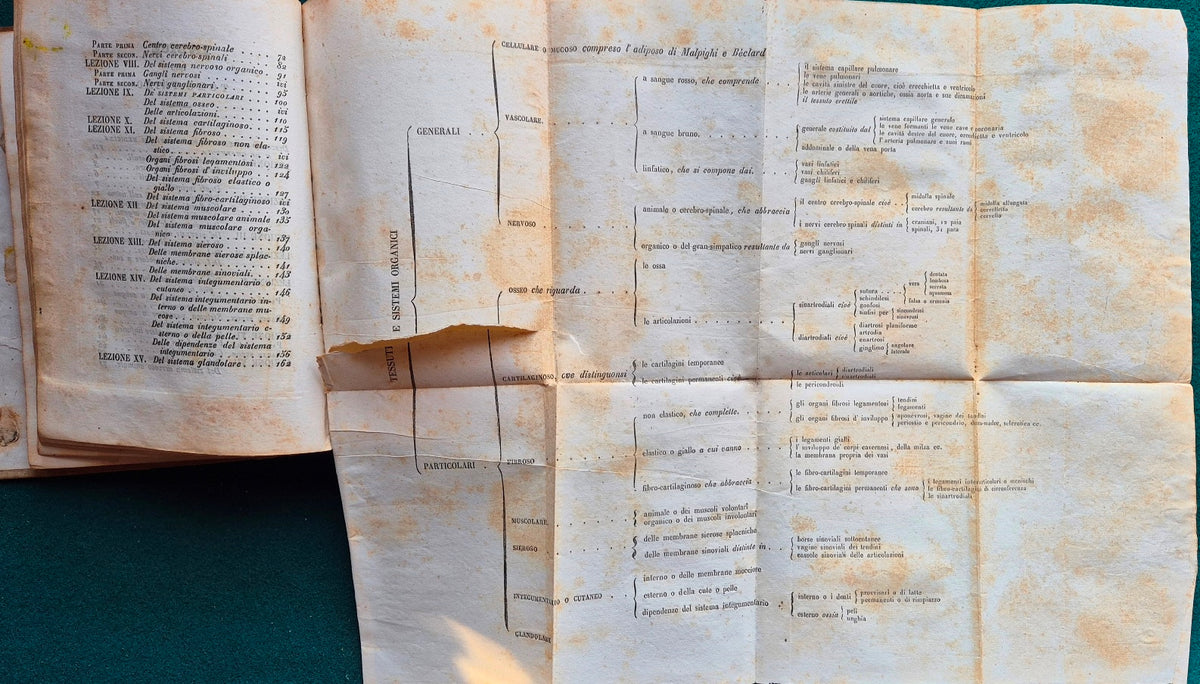 PARTE PRIMA Centro cerebro-spinale . . . . . 72
PARTE SECON. Nervi cerebro-spinali . . . . . 82
LEZIONE VIII. Del sistema nervoso organico .
PARTE PRIMA Gangli nervosi . . . . . . 91
PARTE SECON. Nervi ganglionari . . . . . ivi
LEZIONE IX. DE' SISTEMI PARTICOLARI . . . 95
Del sistema osseo . . . . . 100
Delle articolazioni . . . . . ivi
LEZIONE X. Del sistema cartilaginoso . . . 110
LEZIONE XI. Del sistema fibroso . . . . 115
Del sistema fibroso non ela-
stico . . . . . . 119
Organi fibrosi legamentosi . . . ivi
Organi fibrosi d' inviluppo . . . 122
Del sistema fibroso elastico o 124
giallo . . . . . .
Del sistema fibro-cartilaginoso 127
LEZIONE XII Del sistema muscolare . . . . ivi
Del sistema muscolare animale 130
Del sistema muscolare orga- 135
nico . . . . . .
LEZIONE XIII. Del sistema sieroso . . . . 137
Delle membrane sierose splac- 140
niche . . . . . .
Delle membrane sinoviali . . . 141
LEZIONE XIV. Del sistema integumentario o 143
cutaneo . . . . . . 146
Del sistema integumentario in-
terno o delle membrane mu-
cose . . . . . . 149
Del sistema integumentario e-
sterno o della pelle . . . . 152
Delle dipendenze del sistema
integumentario . . . . . 156
LEZIONE XV. Del sistema glandolare . . . . 162
TESSUTI E SISTEMI ORGANICI
GENERALI
CELLULARE O MUCOSO compreso l' adiposo di Malpighi e Bèclard
VASCOLARE.
a sangue rosso, che comprende
il sistema capillare pulmonare
le vene pulmonari
le cavità sinistre del cuore, cioè orecchietta e ventricolo
le arterie generali o aortiche, ossia aorta e sue diramazioni
il tessuto erettile
a sangue bruno.
generale costituito dal
sistema capillare generale
le vene formanti le vene cave e coronaria
le cavità destre del cuore, orecchietta e ventricolo
l'arteria pulmonare e suoi rami
addominale o della vena porta
linfatico, che si compone dai.
vasi linfatici
vasi chiliferi
gangli linfatici e chiliferi
NERVOSO
animale o cerebro-spinale, che abbraccia
il centro cerebro-spinale cioè
midolla spinale
cerebro resultante da
midolla allungata
cervelletto
cervello
i nervi cerebro spinali distinti in
craniani, 12 paia
spinali, 31 paia
organico o del gran-simpatico resultante da
gangli nervosi
nervi ganglionari
PARTICOLARI
OSSEO che riguarda
le ossa
le articolazioni
sinartrodiali cioè
sutura
vera
dentata
limbosa
serrata
squamosa
falsa o armonia
schindilesi
gonfosi
sinfisi per
sincondrosi
sinevrosi
diartrodiali cioè
diartrosi planiforme
artrodia
enartrosi
ginglimo
angolare
laterale
CARTILAGINOSO, ove distinguonsi
le cartilagini temporanee
le cartilagini permanenti cioè
le articolari
diartrodiali
le pericondroidi
FIBROSO
non elastico, che complette.
gli organi fibrosi legamentosi
tendini
legamenti
gli organi fibrosi d' inviluppo
aponévrosi, vagine dei tendini
periostio e pericondrio, dura-madre, sclerotica ec.
elastico o giallo a cui vanno
i legamenti gialli
l' inviluppo de' corpi cavernosi, della milza ec.
la membrana propria dei vasi
fibro-cartilaginoso che abbraccia
le fibro-cartilagini temporanee
le fibro-cartilagini permanenti che sono
legamenti interarticolari o menischi
le fibro-cartilagini di circonferenza
le sinartrodiali
MUSCOLARE.
animale o dei muscoli volontari
organico o dei muscoli involontari
SIEROSO
delle membrane sierose splacniche
delle membrane sinoviali distinte in
borse sinoviali sottocutanee
vagine sinoviali dei tendini
cassole sinoviali delle articolazioni
INTEGUMENTARIO O CUTANEO
interno o delle membrane mocciose
esterno o della cute o pelle
dipendenze del sistema integumentario
interno o i denti
provvisori o di latte
permanenti o di rimpiazzo
esterno ossia
peli
unghia
GLANDOLARE